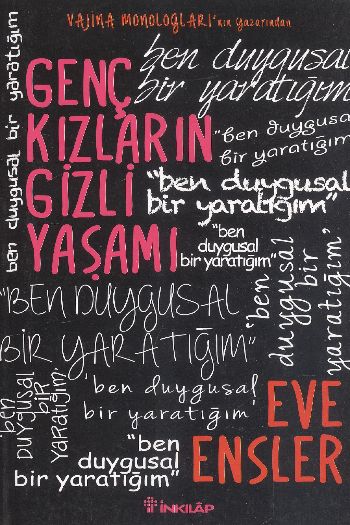 VAJİNA MONOLOGLARI'nın yazarından
ben duygusal bir yaratığım
GENÇ
KIZLARIN
GİZLİ
YAŞAMI
ben duygusal
bir yaratığım
"ben duygusal
bir yaratığım
"ben duygusal
bir yaratığım"
"ben
duygusal
bir yaratığım"
"ben
duygusal
bir
yaratığım"
"BEN DUYGUSAL
BİR YARATIĞIM"
'ben duygusal
bir yaratığım'
"ben
duygusal
bir
yaratığım
"ben
duygusal
bir yaratığım"
EVE
ENSLER
İNKILÂP